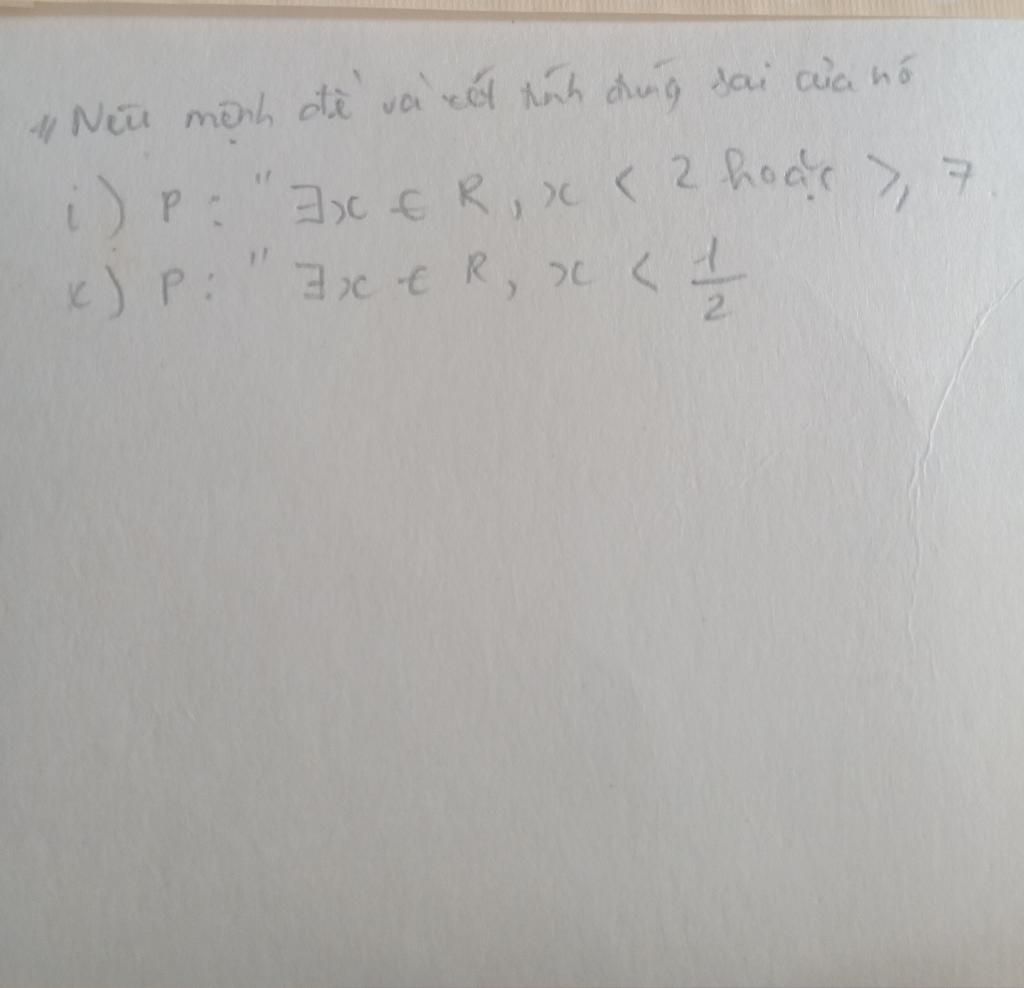 // Nêu mệnh đề và xét tính đúng sai của nó
i) P : " ∃x ∈ R, x < 2 hoặc ≥ 7.
k) P : " ∃x ∈ R, x < 1/2